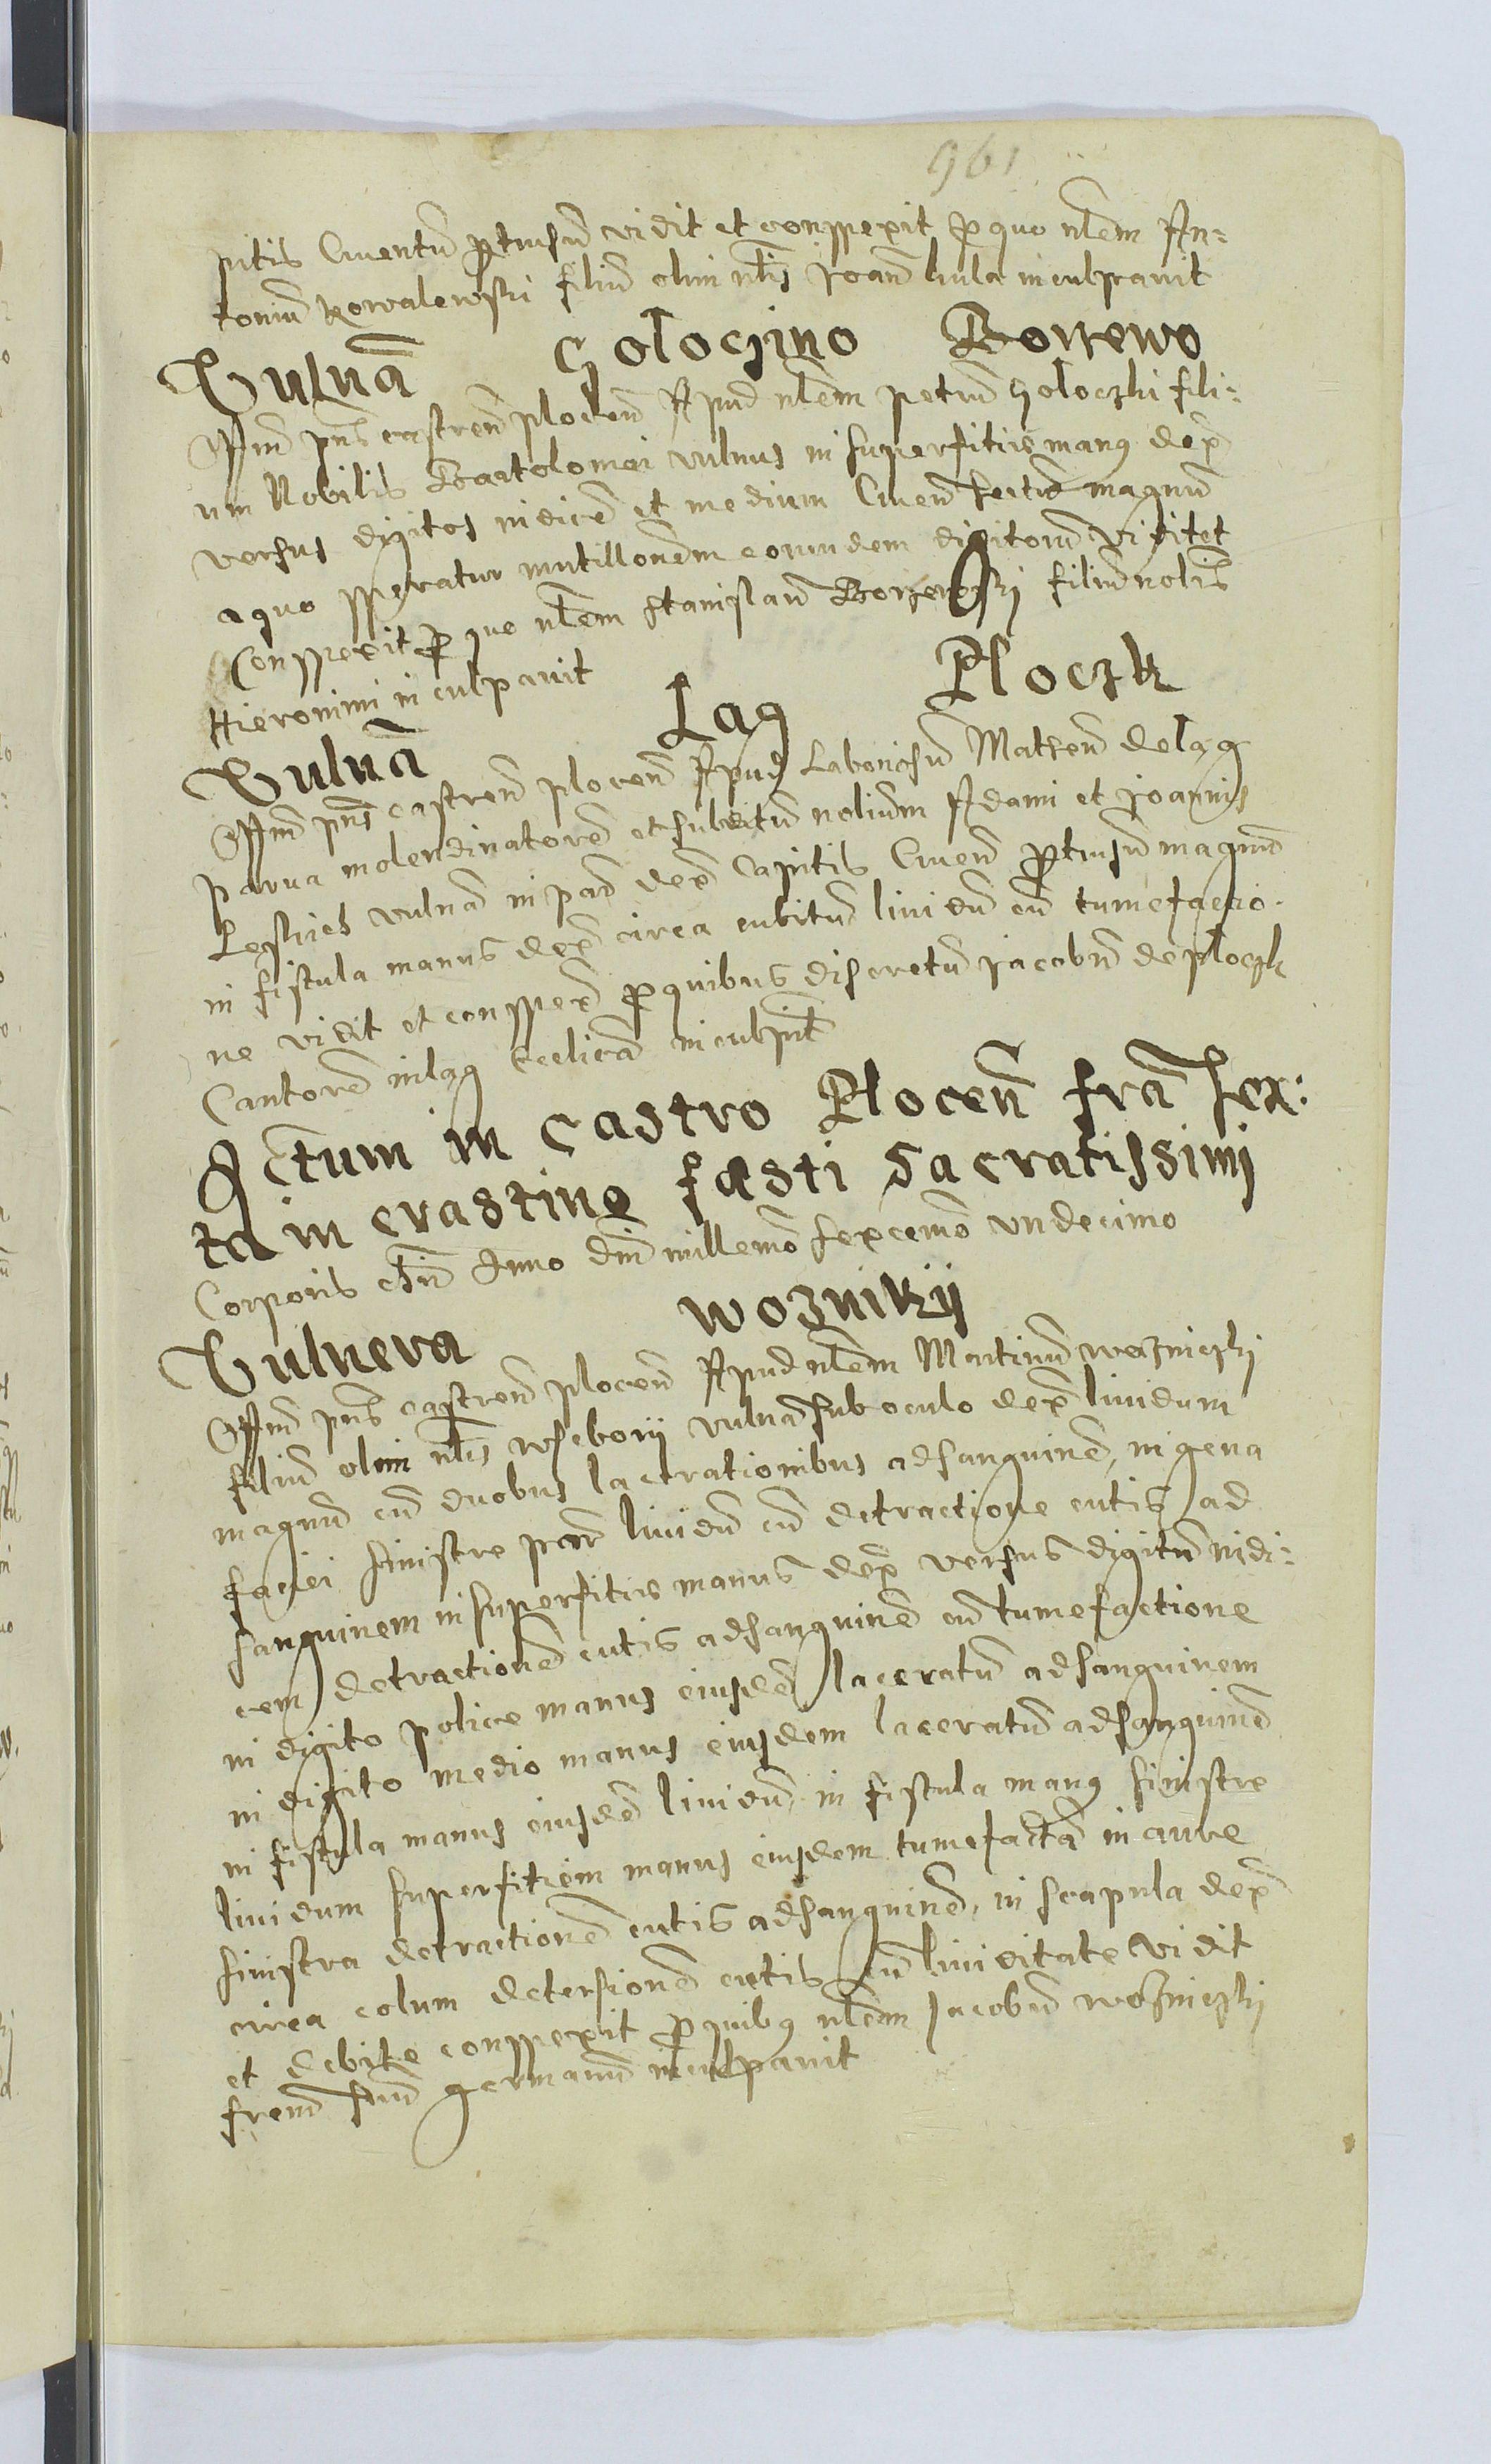 961
pitis Cruentu ptusu vidit et conspexit p quo nlem An:
toniu kowalewski filiu olim nlis Joan kula inculpauit
Vulna Goloczino Borzewo
Offm pns castren plocen Apud nlem petru Goloczki fili:
um Nobilis Bartolomei vulnus in superfitie manq dex
versus digitos indice et medium Cruen sectu magnu
a quo speratur mutillonem eorundem digitoru vidit et
Conspexit p quo nlem Stanislau Borzewski filiu nolis
Hieronimi inculpauit
Vulna Lag Ploczk
Offm pns castren plocen Apud Laboriosu Matheu de lag
parua molendinatore et subditu nolium Adami et Joannis
vulna in par dex Capitis Cruen ptusu magnu
in fistula manus dex circa cubitu liuidu cu tumefactio-
ne vidit et conspex p quibus discretu Jacobu de ploczk
Cantore in lag Ecclica inculpt
Actum in Castro Plocen fra sex:
ta in crastino fæsti Sacratissimi
Corporis chri Anno Dni millemo sexcemo vndecimo
Vulnera woznikij
Offm pns castren plocen Apud nlem Martinu wozniczki
filiu olim nlis wsceborij vulna sub oculo dex liuidum
magnu cu duobus lacerationibus ad sanguine, in gena
faciei sinistre par liuidu cu detractione cutis ad
sanguinem in superfitie manus dex versus digitu indi:
cem detractione cutis ad sanguine cu tumefactione
in digito police manus eiusde laceratu ad sanguinem
in digito medio manus eiusdem laceratu ad sanguine
in fistula manus eiusde liuidu, in fistula manq sinistre
liuidum superfitiem manus eiusdem tumefacta in aure
sinistra detractione cutis ad sanguine, in scapula dex
circa colum detersione cutis cu liuiditate vidit
et debite conspexit p quibq nlem Jacobu wozniczki
frem suu germanu inculpauit